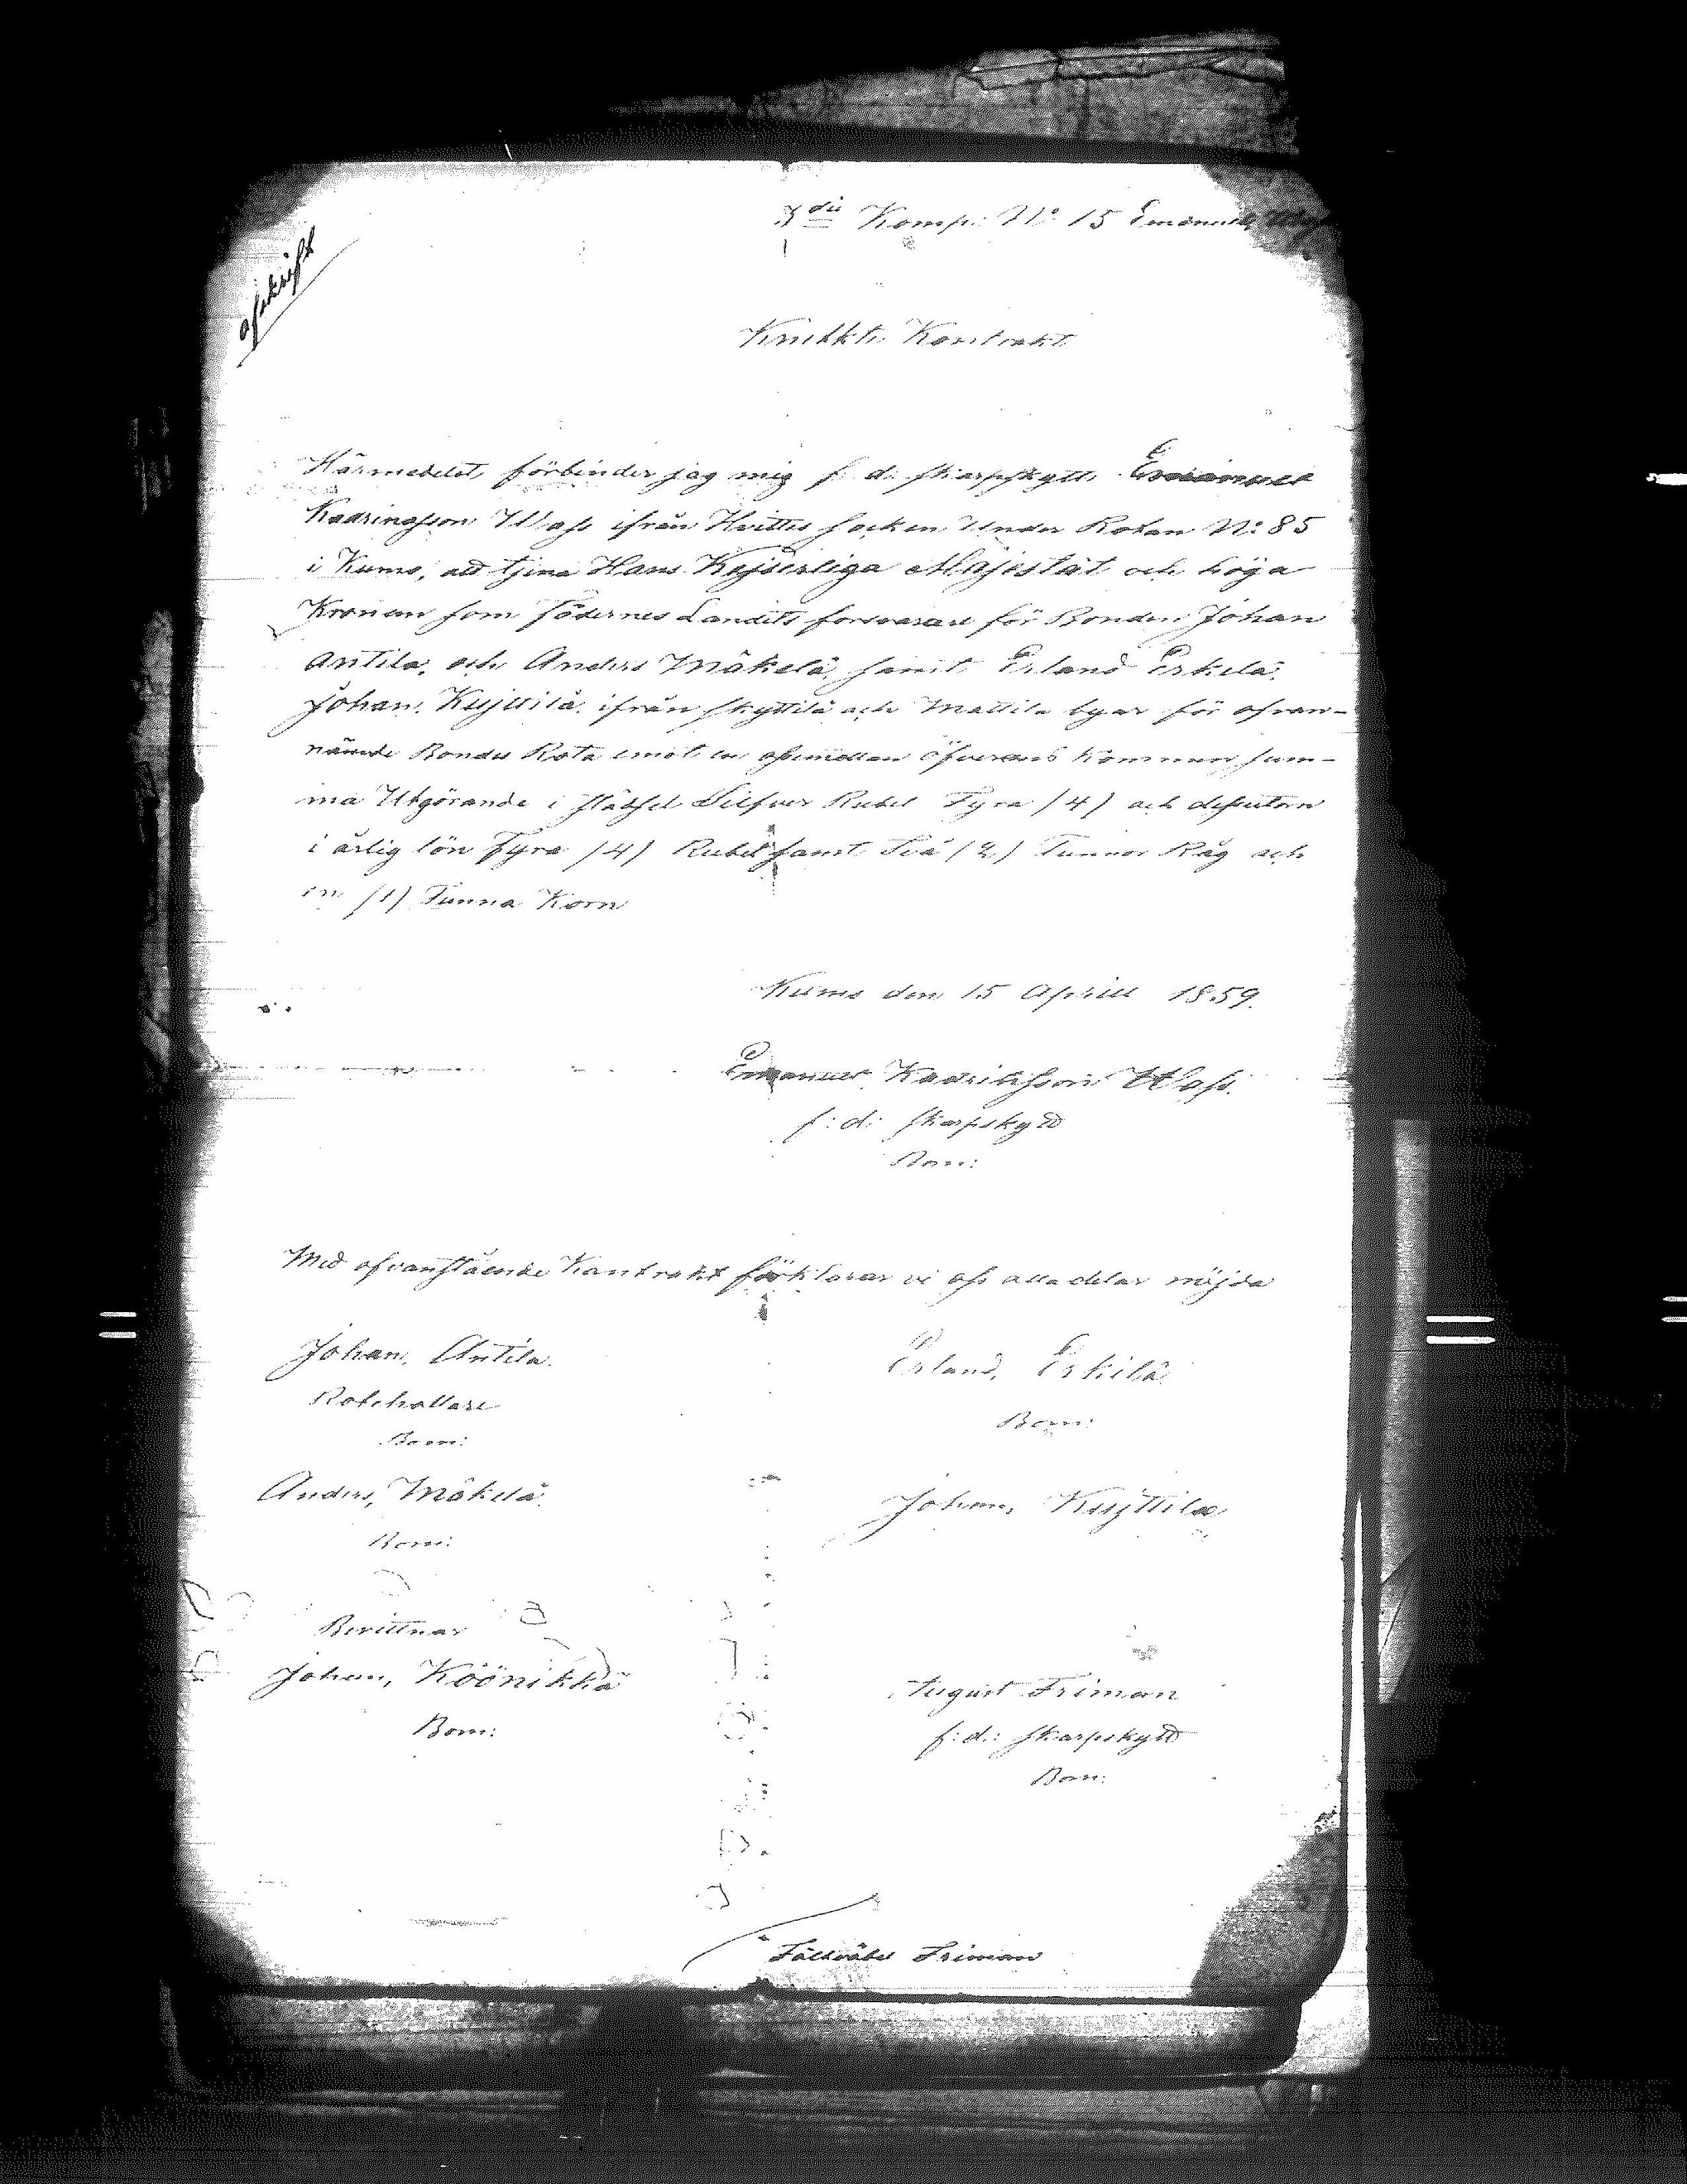 3die Komp: No 15 Emanuel
Afskrift
Knekkte Kontrakt
Härmedelst förbinder jag mig f. d. skarpskytte Emanuel
Kadrinasson Wass ifrån Hvittis socken Under Rotan No: 85
i Kumo, att tjena Hans Kejserliga Majestät och höga
Kronan som Födernes Landets forsvarare för Bonden Johan
Antila, och Anders Mäkelä samt Erland Erkelä,
Johan, Kujttilä, ifrån skyttilä och Mattila byar för ofvan-
nämde Bondes Rota emot en oss emellan öfverens kommen sum-
ma Utgörande i städsel Silfver Rubel Fyra (4) och dessutom
i årlig lön Fyra (4) Rubel samt Två (2) Tunnor Råg och
en (1) Tunna Korn
Kumo den 15 Aprill 1859.
Emanuel Kadrinasson Wass.
f: d: skarpskytt
Bom:
Med ofvanstående Kontrakt förklarar vi oss alla delar nöjda
Johan, Antila.
Rotehållare
Bom:
Erland, Erkilä
Bom:
Anders, Mäkelä
Bom:
Johan, Kujttila
Bevittnar
Johan, Köönikkä
Bom:
August Friman
f: d: skarpskytt
Bom:
Fältväbel Friman